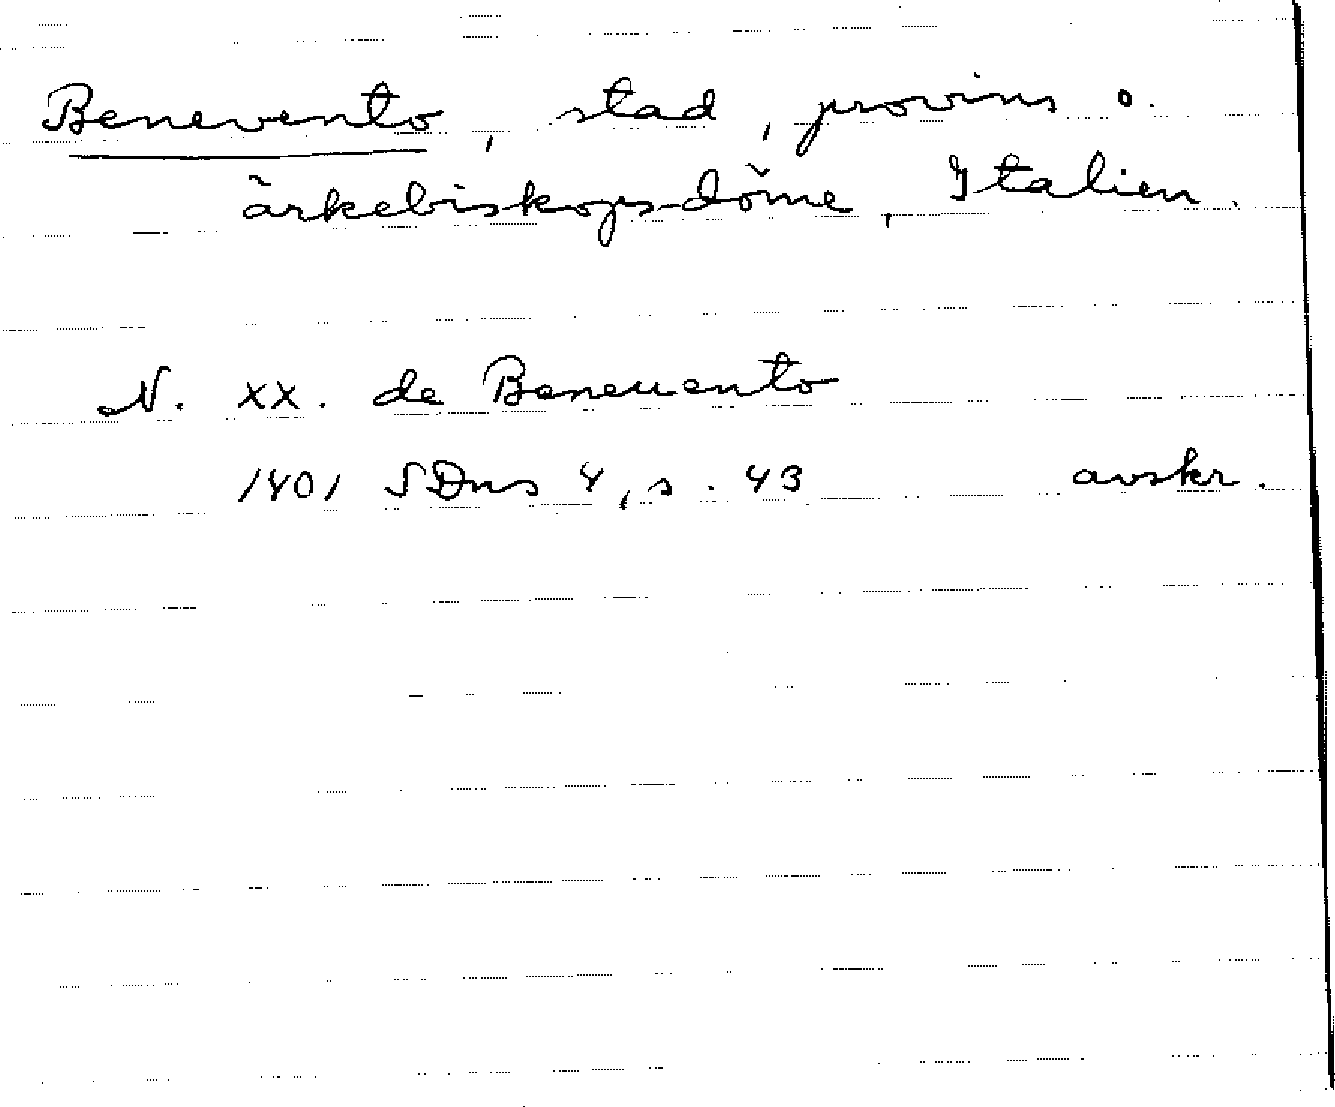 Benevento, stad, provins o.
ärkebiskopsdöme, Italien.
N. xx. de Beneuento
1401 SDns 4, s. 43 avskr.